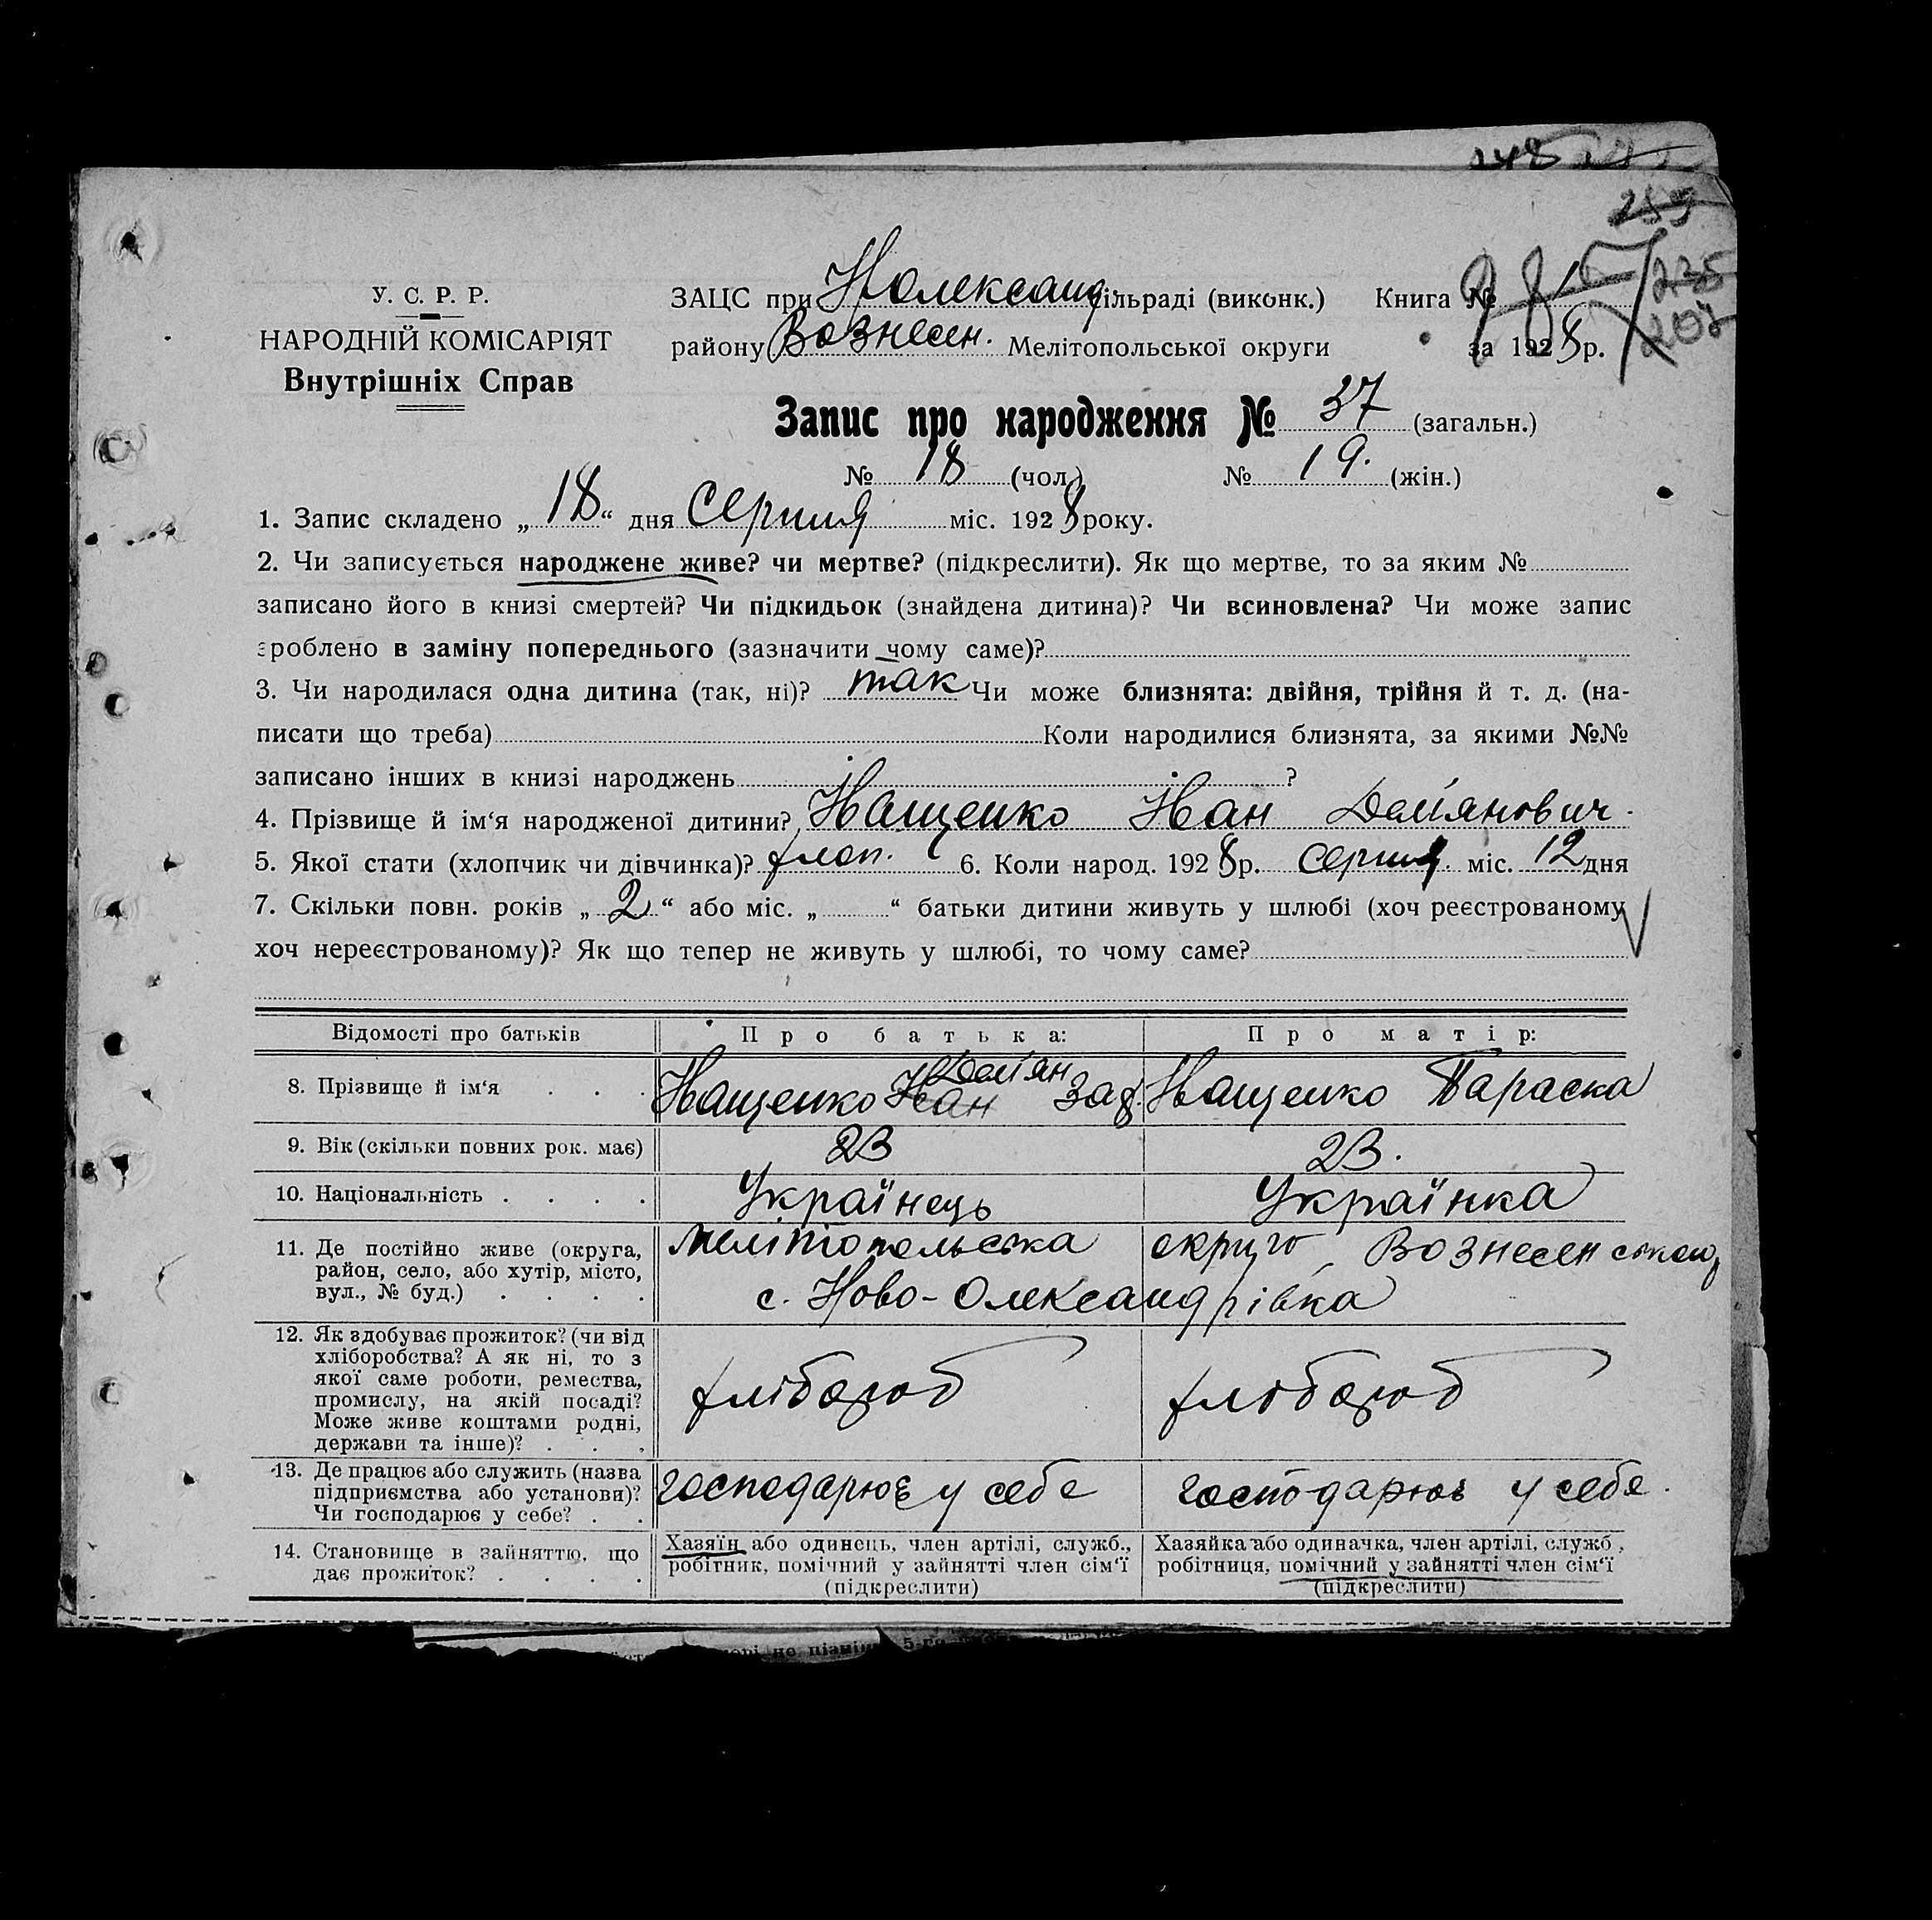 У. С. Р. Р.
НАРОДНІЙ КОМІСАРІЯТ
Внутрішніх Справ
ЗАЦС при Нолександ. сільраді (виконк.) Книга № 1
району Вознесен. Мелітопольської округи за 1928 р.
Запис про народження № 37 (загальн.)
№ 18 (чол.) № 19. (жін.)
1. Запис складено „18“ дня Серпня міс. 1928 року.
2. Чи записується народжене живе? чи мертве? (підкреслити). Як що мертве, то за яким №
записано його в книзі смертей? Чи підкидьок (знайдена дитина)? Чи всиновлена? Чи може запис
зроблено в заміну попереднього (зазначити чому саме)?
3. Чи народилася одна дитина (так, ні)? так Чи може близнята: двійня, трійня й т. д. (на-
писати що треба) Коли народилися близнята, за якими №№
записано інших в книзі народжень ?
4. Прізвище й ім‘я народженої дитини? Іващенко Іван Дем'янович.
5. Якої стати (хлопчик чи дівчинка)? хлоп. 6. Коли народ. 1928 р. Серпня. міс. 12 дня
7. Скільки повн. років „2“ або міс. „ “ батьки дитини живуть у шлюбі (хоч реєстрованому
хоч нереєстрованому)? Як що тепер не живуть у шлюбі, то чому саме?
Відомості про батьків Про батька: Про матір:
8. Прізвище й ім‘я . . . Іващенко Іван Дем'ян Зах. Іващенко Параска
9. Вік (скільки повних рок. має) 23 23.
10. Національність . . . . Українець Українка
11. Де постійно живе (округа,
район, село, або хутір, місто,
вул., № буд.) . . . .
Мелітопольська округа Вознесенського
с. Ново-Олександрівка
12. Як здобуває прожиток? (чи від
хліборобства? А як ні, то з
якої саме роботи, ремества,
промислу, на якій посаді?
Може живе коштами родні,
держави та інше)? . . .
хлібороб хлібороб
13. Де працює або служить (назва
підприємства або установи)?
Чи господарює у себе? . .
господарює у себе господарює у себе.
14. Становище в зайняттю, що
дає прожиток? . . . .
Хазяїн або одинець, член артілі, служб.,
робітник, помічний у зайнятті член сім‘ї
(підкреслити)
Хазяйка або одиначка, член артілі, служб.,
робітниця, помічний у зайнятті член сім‘ї
(підкреслити)